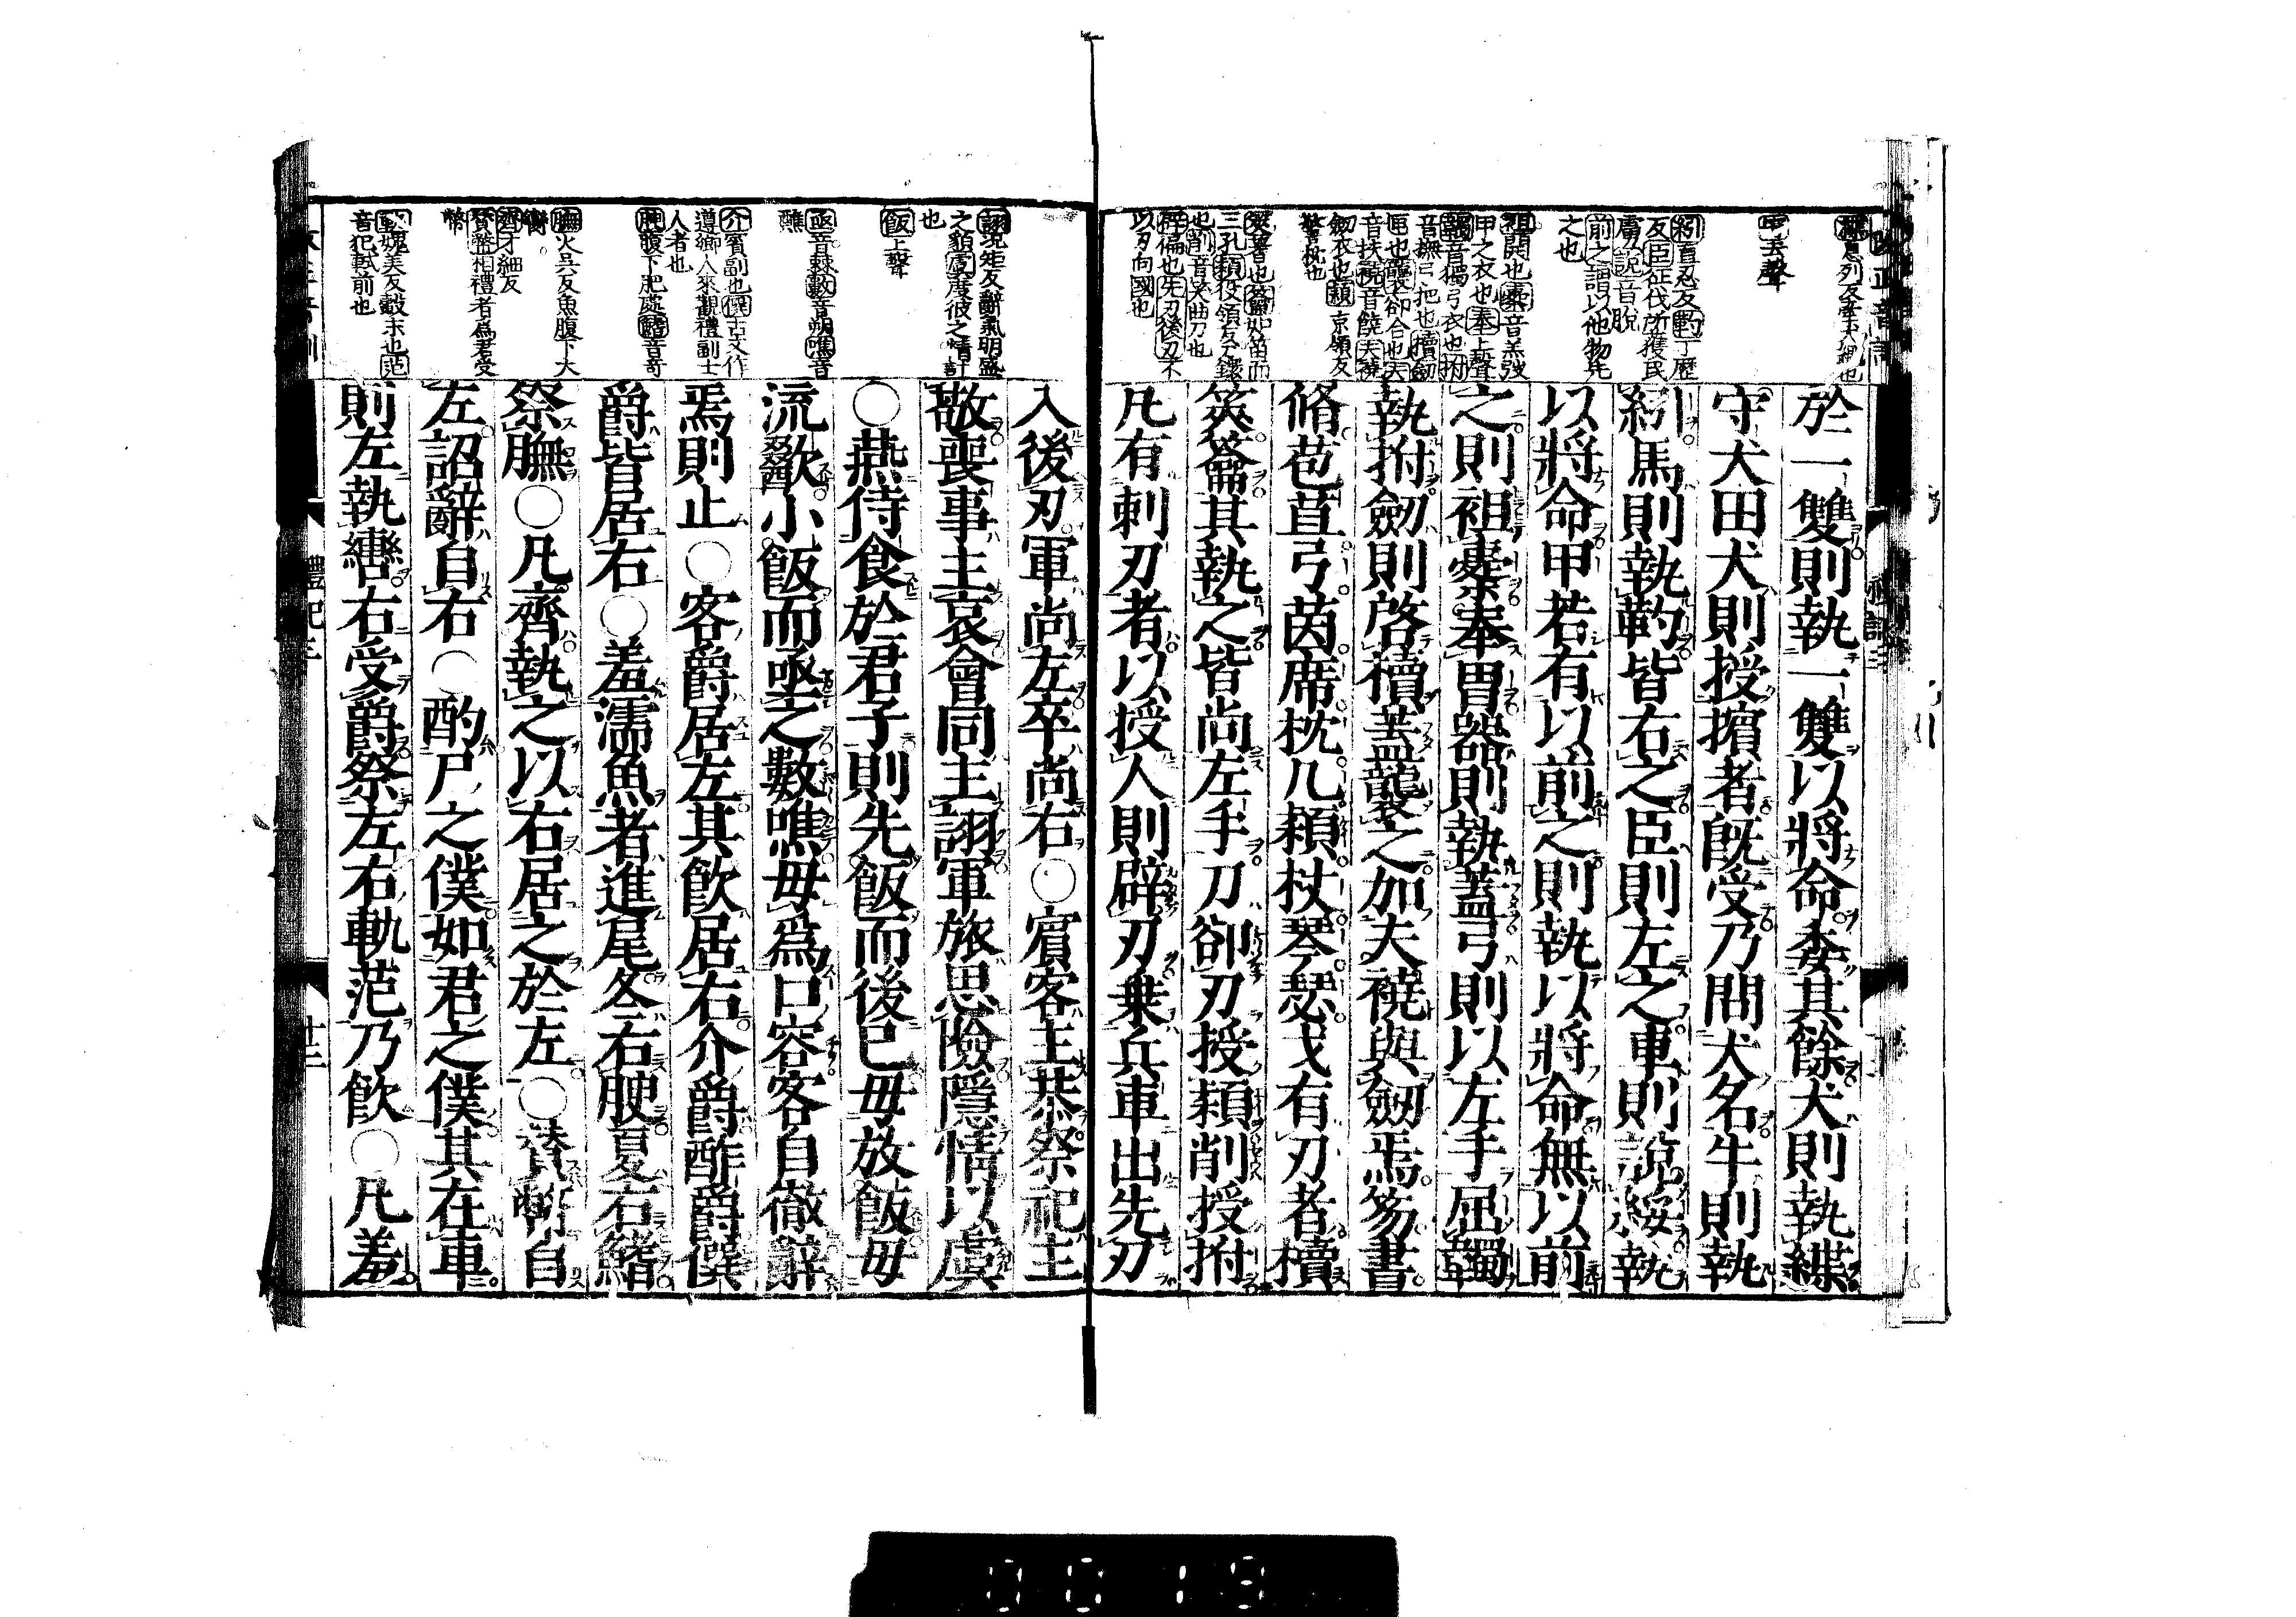 於一雙則執一雙以將命委其餘犬則執緤
守犬田犬則授擯者既受乃問犬名牛則執
紖馬則執靮皆右之臣則左之車則說綏執
以將命甲若有以前之則執以將命無以前
之則袒櫜奉胄器則執蓋弓則以左手屈韣
執拊劒則啓櫝蓋襲之加夫襓與劒焉笏書
脩苞苴弓茵席枕几熲杖琴瑟戈有刃者櫝
筴籥其執之皆尚左手刀郤刃授穎削授拊
凡有刺刃者以授人則辟刃乗兵車出先刃
入後刃軍尚左卒尚右○賓客主恭祭祀主
敬喪事主哀會同主詡軍旅思險隱情以虞
○燕侍食於君子則先飯而後已毋放飯毋
流歠小飯而亟之數噍毋爲口容客自徹辭
焉則止○客爵居左其飮居右介爵酢爵僎
爵皆居右○羞濡魚者進尾冬右腴夏右鰭
祭膴○凡齊執之以右居之於左○贊幣自
左詔辭自右○酌尸之僕如君之僕其在車
則左執轡右受爵祭左右軌范乃飮○凡羞
去聲
紖直忍反靮丁歷
反臣征伐所獲民
虜說音脫
前之謂以他物先
之也
袒開也櫜音羔弢
甲之衣也奉上聲
韣音獨弓衣也拊
音撫弓把也櫝劒
匣也襲郤合也夫
音扶襓音饒夫襓
劒衣也熲京領反
警枕也
筴蓍也籥如笛而
三孔穎役領反鐶
也削音笑曲刀也
辟偏也先刃後刃不
以刃向國也
詡況矩反辭氣明盛
之貌虞度彼之情計
也
飯上聲
亟音棘數音朔噍音
醮
介賓副也僎古文作
遵鄉人來觀禮副主
人者也
腴腹下肥處鰭音奇
膴火吳反魚腹下大
臠
齊才細反
贊幣相禮者爲君受
幣
軌媿美反轂末也范
音犯軾前也
禮記三
十三
0019